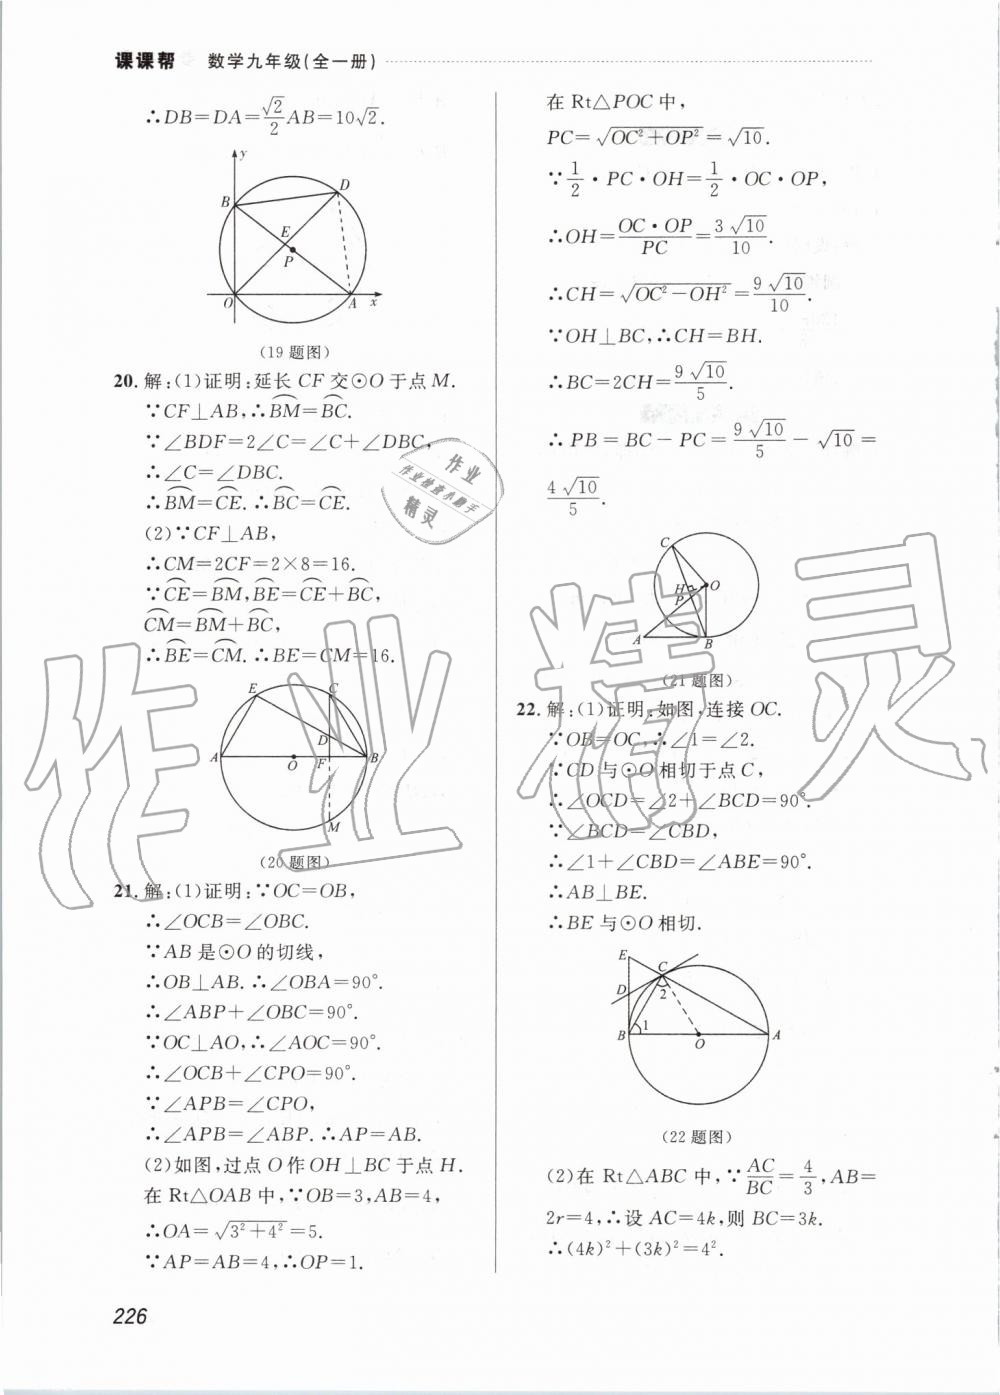 课课帮 数学九年级(全一册)
∴DB=DA=\frac{\sqrt{2}}{2}AB=10\sqrt{2}.
y
B
D
E
P
O
A
x
(19题图)
20. 解:(1)证明:延长 CF 交⊙O于点 M.
∵CF⊥AB,∴\overset{\frown}{BM}=\overset{\frown}{BC}.
∵∠BDF=2∠C=∠C+∠DBC,
∴∠C=∠DBC.
∴\overset{\frown}{BM}=\overset{\frown}{CE}.∴\overset{\frown}{BC}=\overset{\frown}{CE}.
(2)∵CF⊥AB,
∴CM=2CF=2×8=16.
∵\overset{\frown}{CE}=\overset{\frown}{BM},\overset{\frown}{BE}=\overset{\frown}{CE}+\overset{\frown}{BC},
\overset{\frown}{CM}=\overset{\frown}{BM}+\overset{\frown}{BC},
∴\overset{\frown}{BE}=\overset{\frown}{CM}.∴BE=CM=16.
E
C
D
A
O
F
B
M
(20题图)
21. 解:(1)证明:∵OC=OB,
∴∠OCB=∠OBC.
∵AB是⊙O的切线,
∴OB⊥AB.∴∠OBA=90°.
∴∠ABP+∠OBC=90°.
∵OC⊥AO,∴∠AOC=90°.
∴∠OCB+∠CPO=90°.
∵∠APB=∠CPO,
∴∠APB=∠ABP.∴AP=AB.
(2)如图,过点O作OH⊥BC于点H.
在Rt△OAB中,∵OB=3,AB=4,
∴OA=\sqrt{3^2+4^2}=5.
∵AP=AB=4,∴OP=1.
226
在Rt△POC中,
PC=\sqrt{OC^2+OP^2}=\sqrt{10}.
∵\frac{1}{2}·PC·OH=\frac{1}{2}·OC·OP,
∴OH=\frac{OC·OP}{PC}=\frac{3\sqrt{10}}{10}.
∴CH=\sqrt{OC^2-OH^2}=\frac{9\sqrt{10}}{10}.
∵OH⊥BC,∴CH=BH.
∴BC=2CH=\frac{9\sqrt{10}}{5}.
∴PB=BC-PC=\frac{9\sqrt{10}}{5}-\sqrt{10}=
\frac{4\sqrt{10}}{5}.
C
H
O
P
A
B
(21题图)
22. 解:(1)证明:如图,连接OC.
∵OB=OC,∴∠1=∠2.
∵CD与⊙O相切于点C,
∴∠OCD=∠2+∠BCD=90°.
∵∠BCD=∠CBD,
∴∠1+∠CBD=∠ABE=90°.
∴AB⊥BE.
∴BE与⊙O相切.
E
C
D
2
B
1
O
A
(22题图)
(2)在Rt△ABC中,∵\frac{AC}{BC}=\frac{4}{3},AB=
2r=4,∴设AC=4k,则BC=3k.
∴(4k)^2+(3k)^2=4^2.
作业
作业检查小助手
精灵
作业精灵